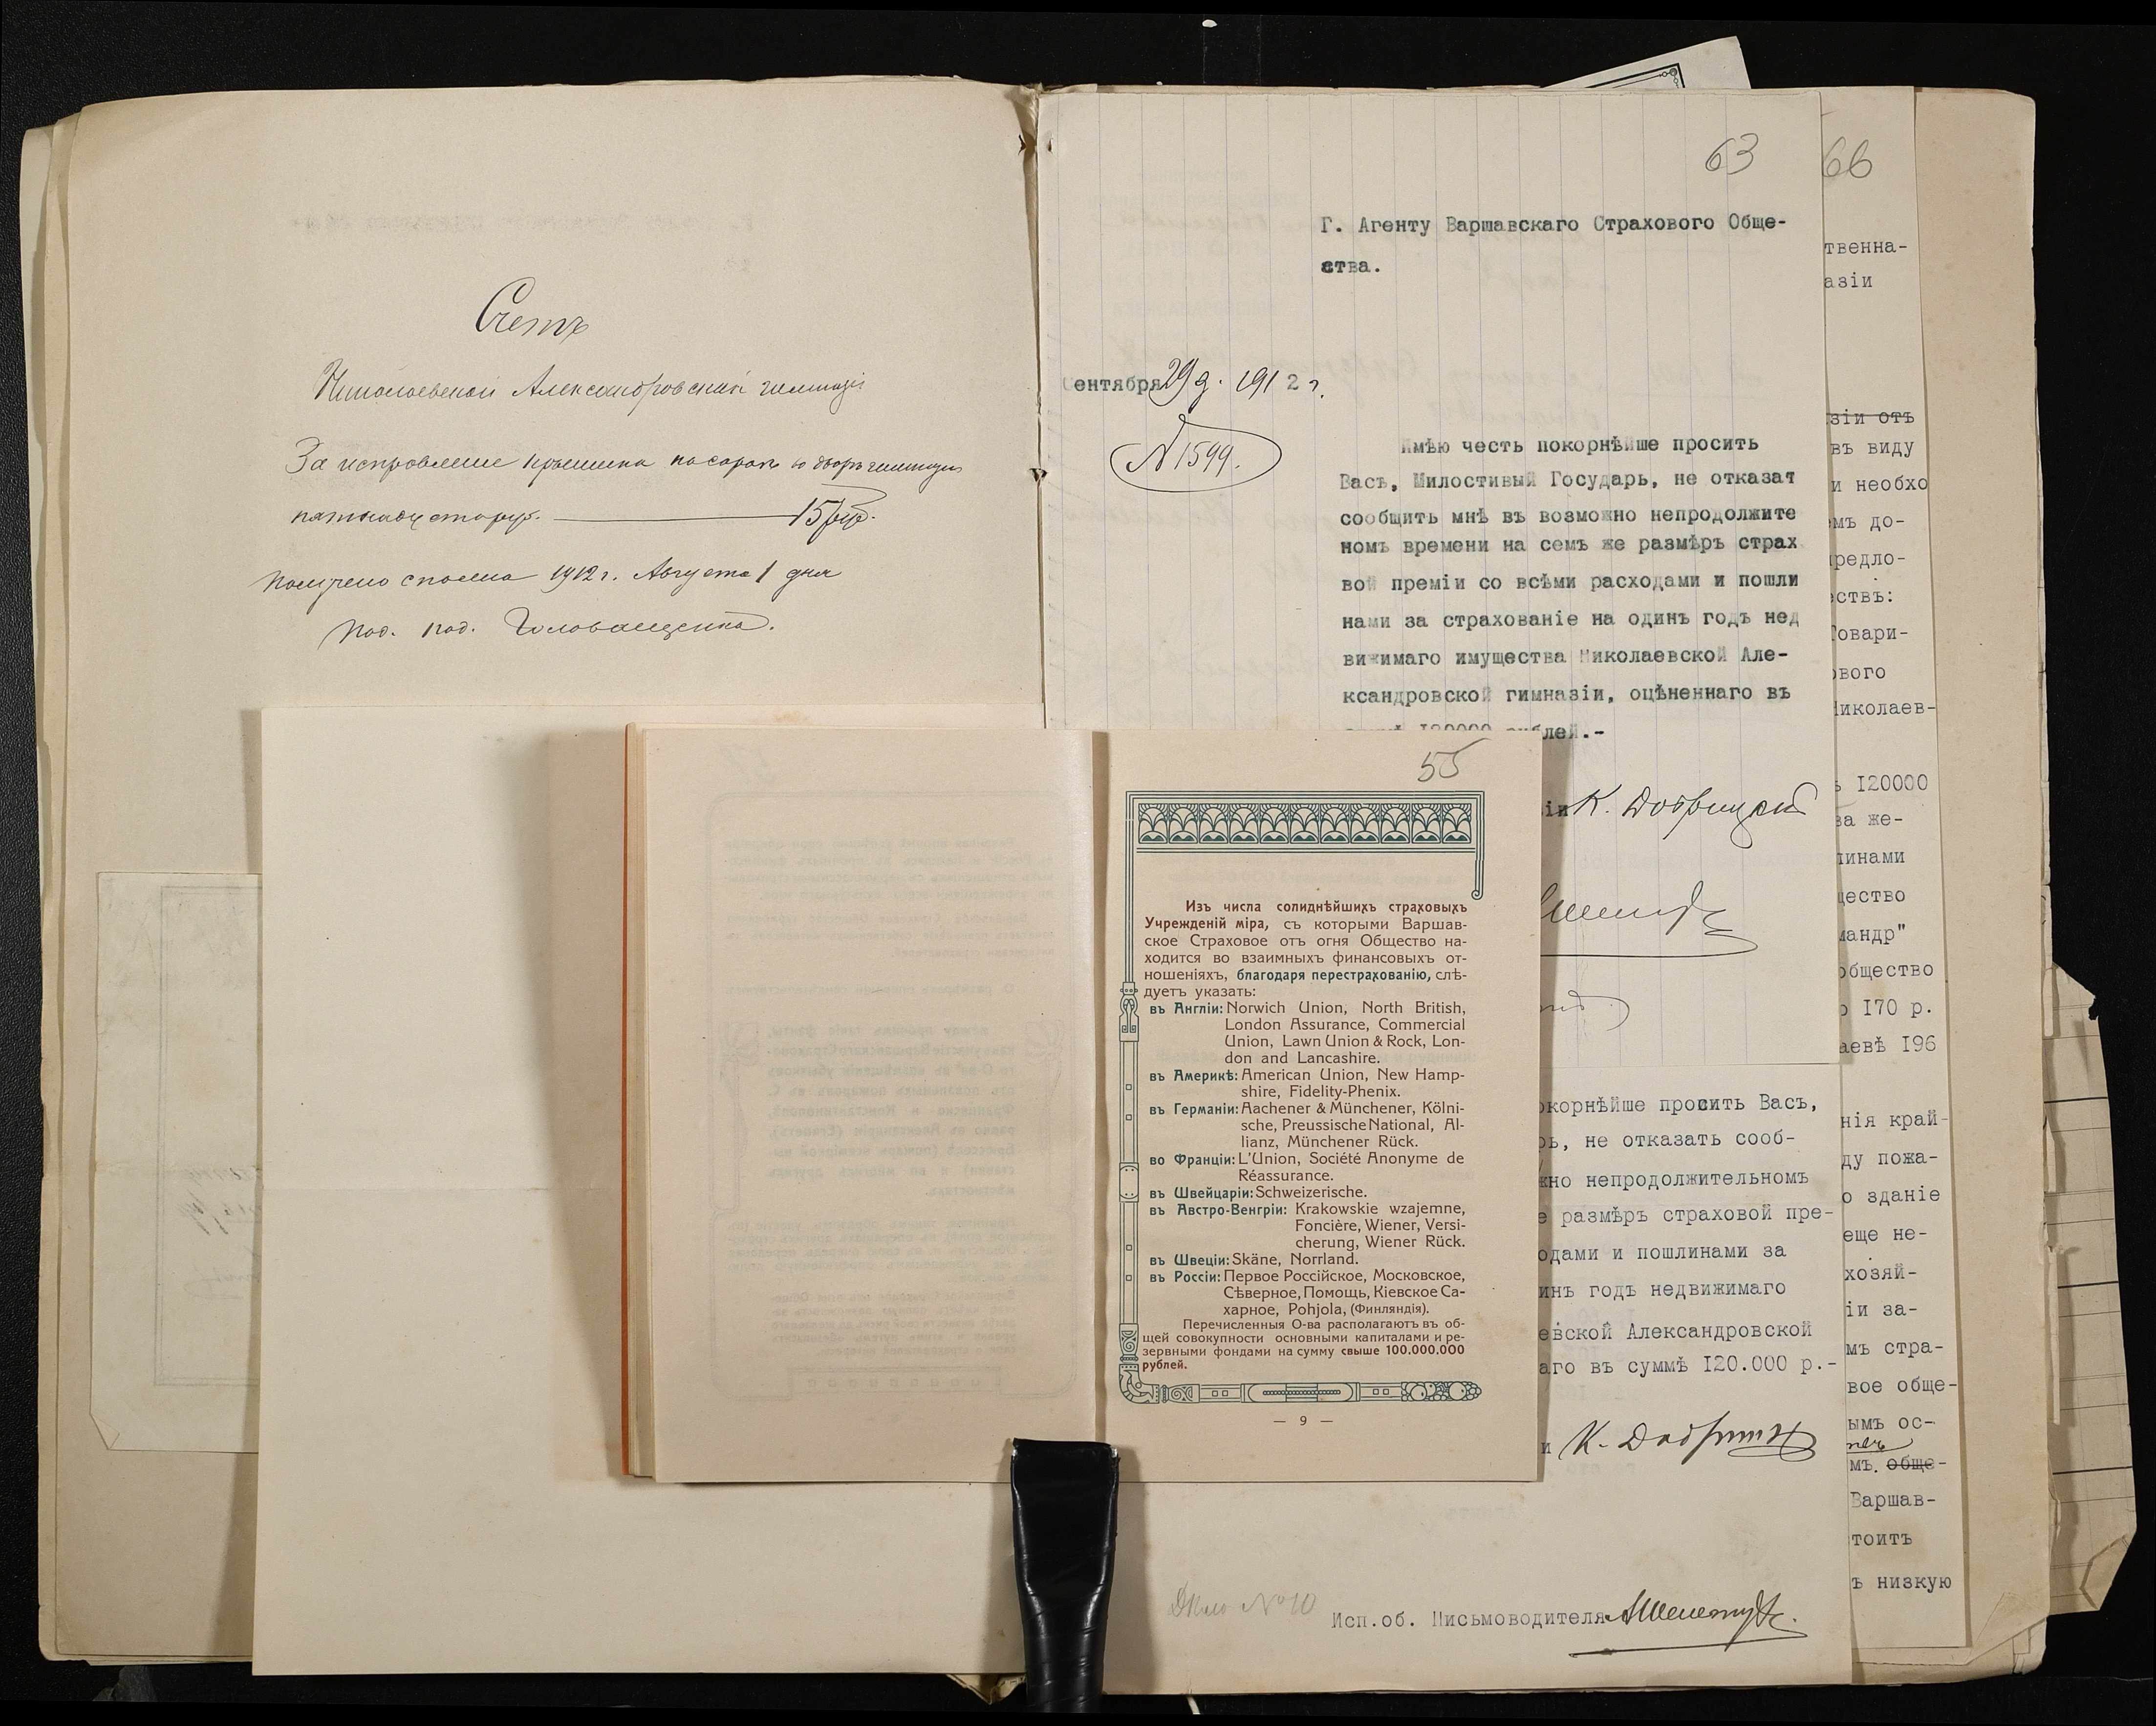 Счетъ
Николаевской Александровской гимназіи
За исправление крышина насараѣ во дворѣ гимназіи
пятнадцать руб. 15 руб.
Получено сполна 1912 г. Августа 1 дня
под. Головащенко.
63
Г. Агенту Варшавскаго Страхового Обще-
ства.
Сентября 29 д. 1912 г.
№ 1599.
Имѣю честь покорнѣйше просить
Васъ, Милостивый Государь, не отказат
сообщить мнѣ въ возможно непродолжите
номъ времени на семъ же размѣръ страх
вой преміи со всѣми расходами и пошли
нами за страхованіе на одинъ годъ нед
вижимаго имущества Николаевской Але-
ксандровской гимназіи, оцѣненнаго въ
суммѣ 120000 рублей.-
іи К. Добрицкій
55
Изъ числа солиднѣйшихъ страховыхъ
Учрежденій міра, съ которыми Варшав-
ское Страховое отъ огня Общество на-
ходится во взаимныхъ финансовыхъ от-
ношеніяхъ, благодаря перестрахованію, слѣ-
дуетъ указать:
въ Англіи: Norwich Union, North British,
London Assurance, Commercial
Union, Lawn Union & Rock, Lon-
don and Lancashire.
въ Америкѣ: American Union, New Hamp-
shire, Fidelity-Phenix.
въ Германіи: Aachener & Münchener, Kölni-
sche, Preussische National, Al-
lianz, Münchener Rück.
во Франціи: L'Union, Société Anonyme de
Réassurance.
въ Швейцаріи: Schweizerische.
въ Австро-Венгріи: Krakowskie wzajemne,
Foncière, Wiener, Versi-
cherung, Wiener Rück.
въ Швеціи: Skäne, Norrland.
въ Россіи: Первое Россійское, Московское,
Сѣверное, Помощь, Кіевское Са-
харное, Pohjola, (Финляндія).
Перечисленныя О-ва располагаютъ въ об-
щей совокупности основными капиталами и ре-
зервными фондами на сумму свыше 100.000.000
рублей.
— 9 —
окорнѣйше просить Васъ,
рь, не отказать сооб-
жно непродолжительномъ
е размѣръ страховой пре-
одами и пошлинами за
инъ годъ недвижимаго
евской Александровской
аго въ суммѣ 120.000 р.-
и К. Добрицкій
Дѣло № 10
Исп.об. Письмоводителя АШелемутъ
66
твенна-
азіи
зіи отъ
въ виду
и необхо
мъ до-
редло-
ствъ:
Товари-
ового
Николаев-
ъ 120000
ва же-
линами
щество
мандр"
общество
о 170 р.
аевѣ 196
нія край-
ду пожа-
о зданіе
еще не-
хозяй-
іи за-
мъ стра-
вое обще-
ымъ ос-
мъ. обще-
Варшав-
тоитъ
ъ низкую